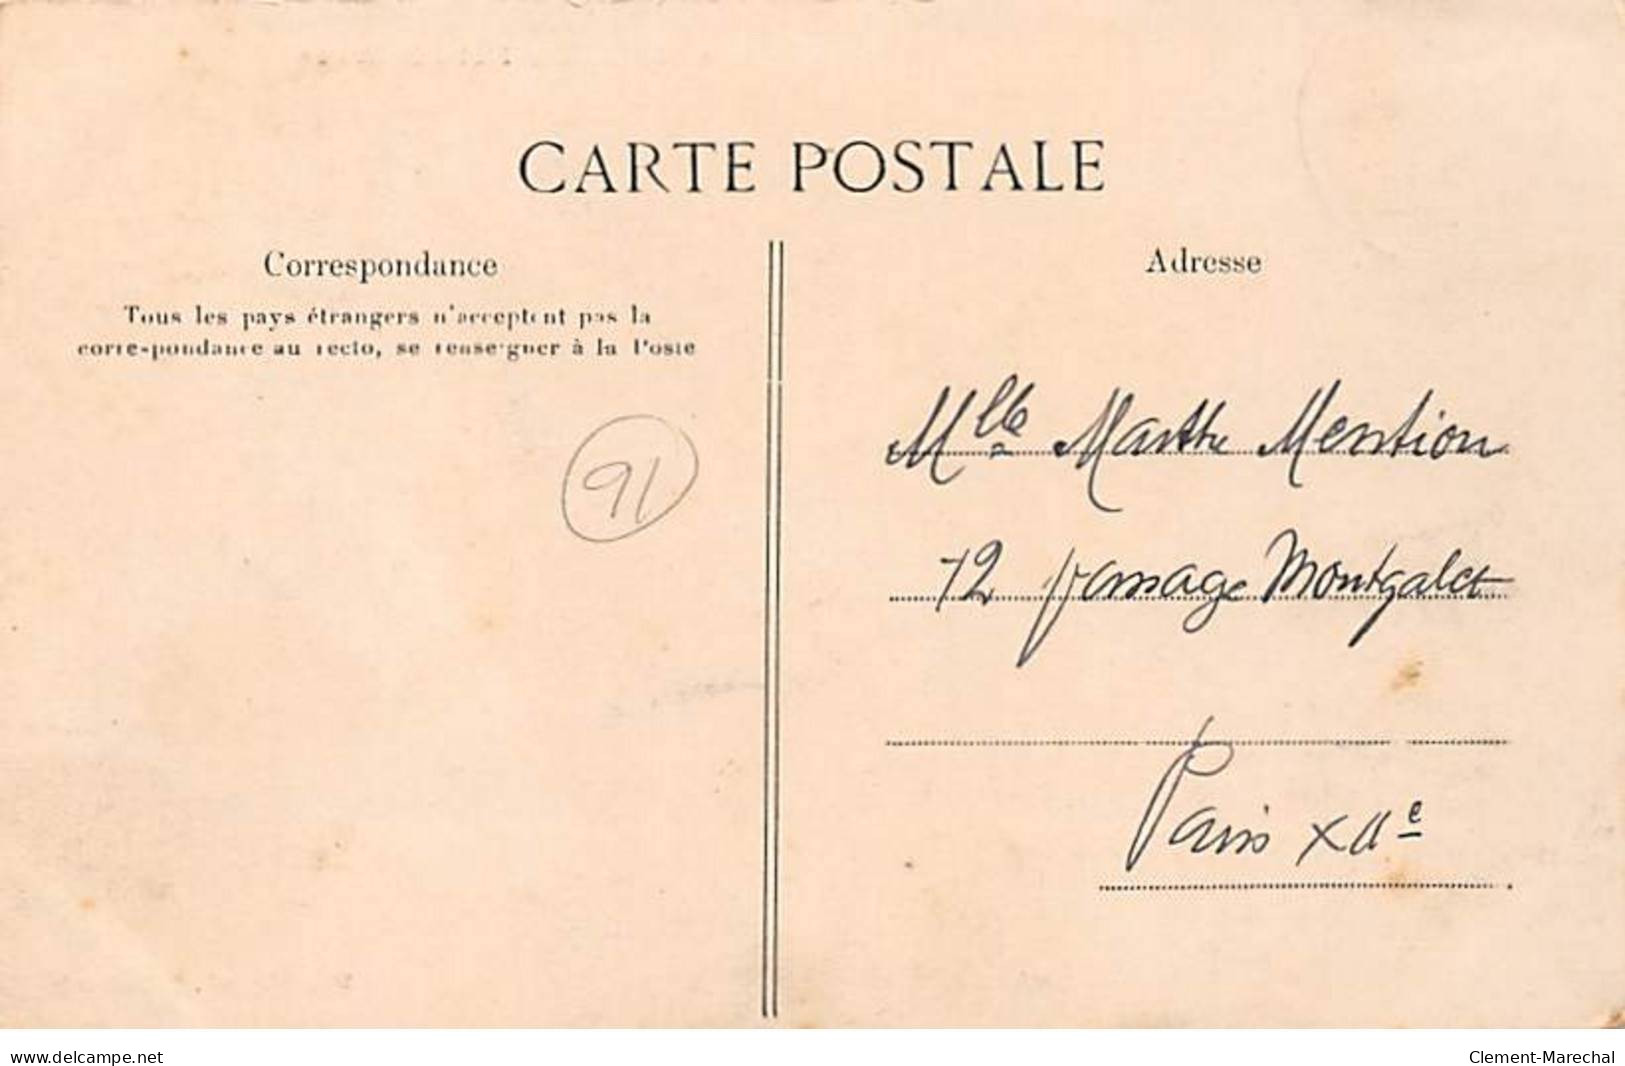 CARTE POSTALE
Correspondance
Tous les pays étrangers n'acceptent pas la
correspondance au recto, se renseigner à la Poste
91
Adresse
Mlle Marthe Mention
12 passage Montgalet
Paris XIIe
delcampe.net
Clement-Marechal